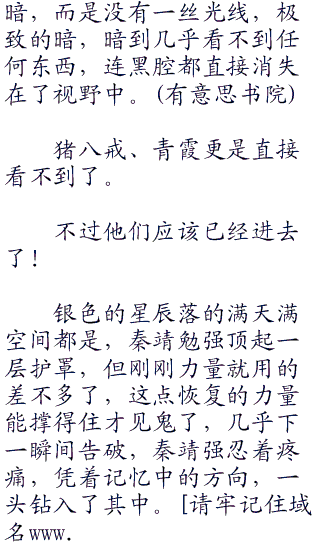 暗，而是没有一丝光线，极
致的暗，暗到几乎看不到任
何东西，连黑腔都直接消失
在了视野中。(有意思书院)
猪八戒、青霞更是直接
看不到了。
不过他们应该已经进去
了！
银色的星辰落的满天满
空间都是，秦靖勉强顶起一
层护罩，但刚刚力量就用的
差不多了，这点恢复的力量
能撑得住才见鬼了，几乎下
一瞬间告破，秦靖强忍着疼
痛，凭着记忆中的方向，一
头钻入了其中。[请牢记住域
名www.